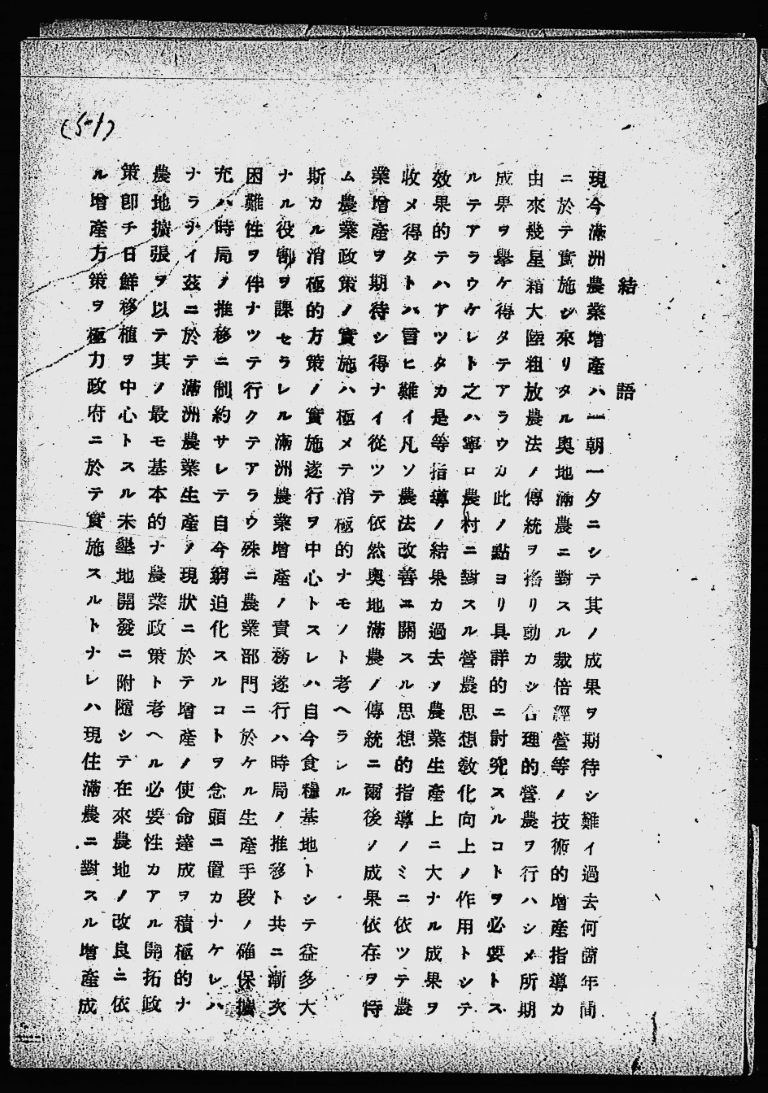 (51)
結語
現今滿洲農業增產ハ一朝一夕ニシテ其ノ成果ヲ期待シ難イ過去何諸年間
ニ於テ實施シ來リタル奧地滿農ニ對スル栽倍經營等ノ技術的增產指導カ
由來幾星霜大陸粗放農法ノ傳統ヲ搖リ動カシ合理的營農ヲ行ハシメ所期
成果ヲ擧ケ得タテアラウカ此ノ點ヨリ具詳的ニ討究スルコトヲ必要トス
ルテアラウケレト之ハ寧ロ農村ニ對スル營農思想敎化向上ノ作用トシテ
效果的テハアツタカ是等指導ノ結果カ過去ノ農業生產上ニ大ナル成果ヲ
收メ得タトハ言ヒ難イ凡ソ農法改善ニ關スル思想的指導ノミニ依ツテ農
業增產ヲ期待シ得ナイ從ツテ依然奧地滿農ノ傳統ニ爾後ノ成果依存ヲ待
ム農業政策ノ實施ハ極メテ消極的ナモノト考ヘラレル
斯カル消極的方策ノ實施遂行ヲ中心トスレハ自今食糧基地トシテ益多大
ナル役割ヲ課セラレル滿洲農業增產ノ責務遂行ハ時局ノ推移ト共ニ漸次
困難性ヲ伴ナツテ行クテアラウ殊ニ農業部門ニ於ケル生產手段ノ確保擴
充ハ時局ノ推移ニ制約サレテ自今窮迫化スルコトヲ念頭ニ置カナケレハ
ナラナイ茲ニ於テ滿洲農業生產ノ現狀ニ於テ增產ノ使命達成ヲ積極的ナ
農地擴張ヲ以テ其ノ最モ基本的ナ農業政策ト考ヘル必要性カアル開拓政
策卽チ日鮮移植ヲ中心トスル未墾地開發ニ附隨シテ在來農地ノ改良ニ依
ル增產方策ヲ極力政府ニ於テ實施スルトナレハ現住滿農ニ對スル增產成